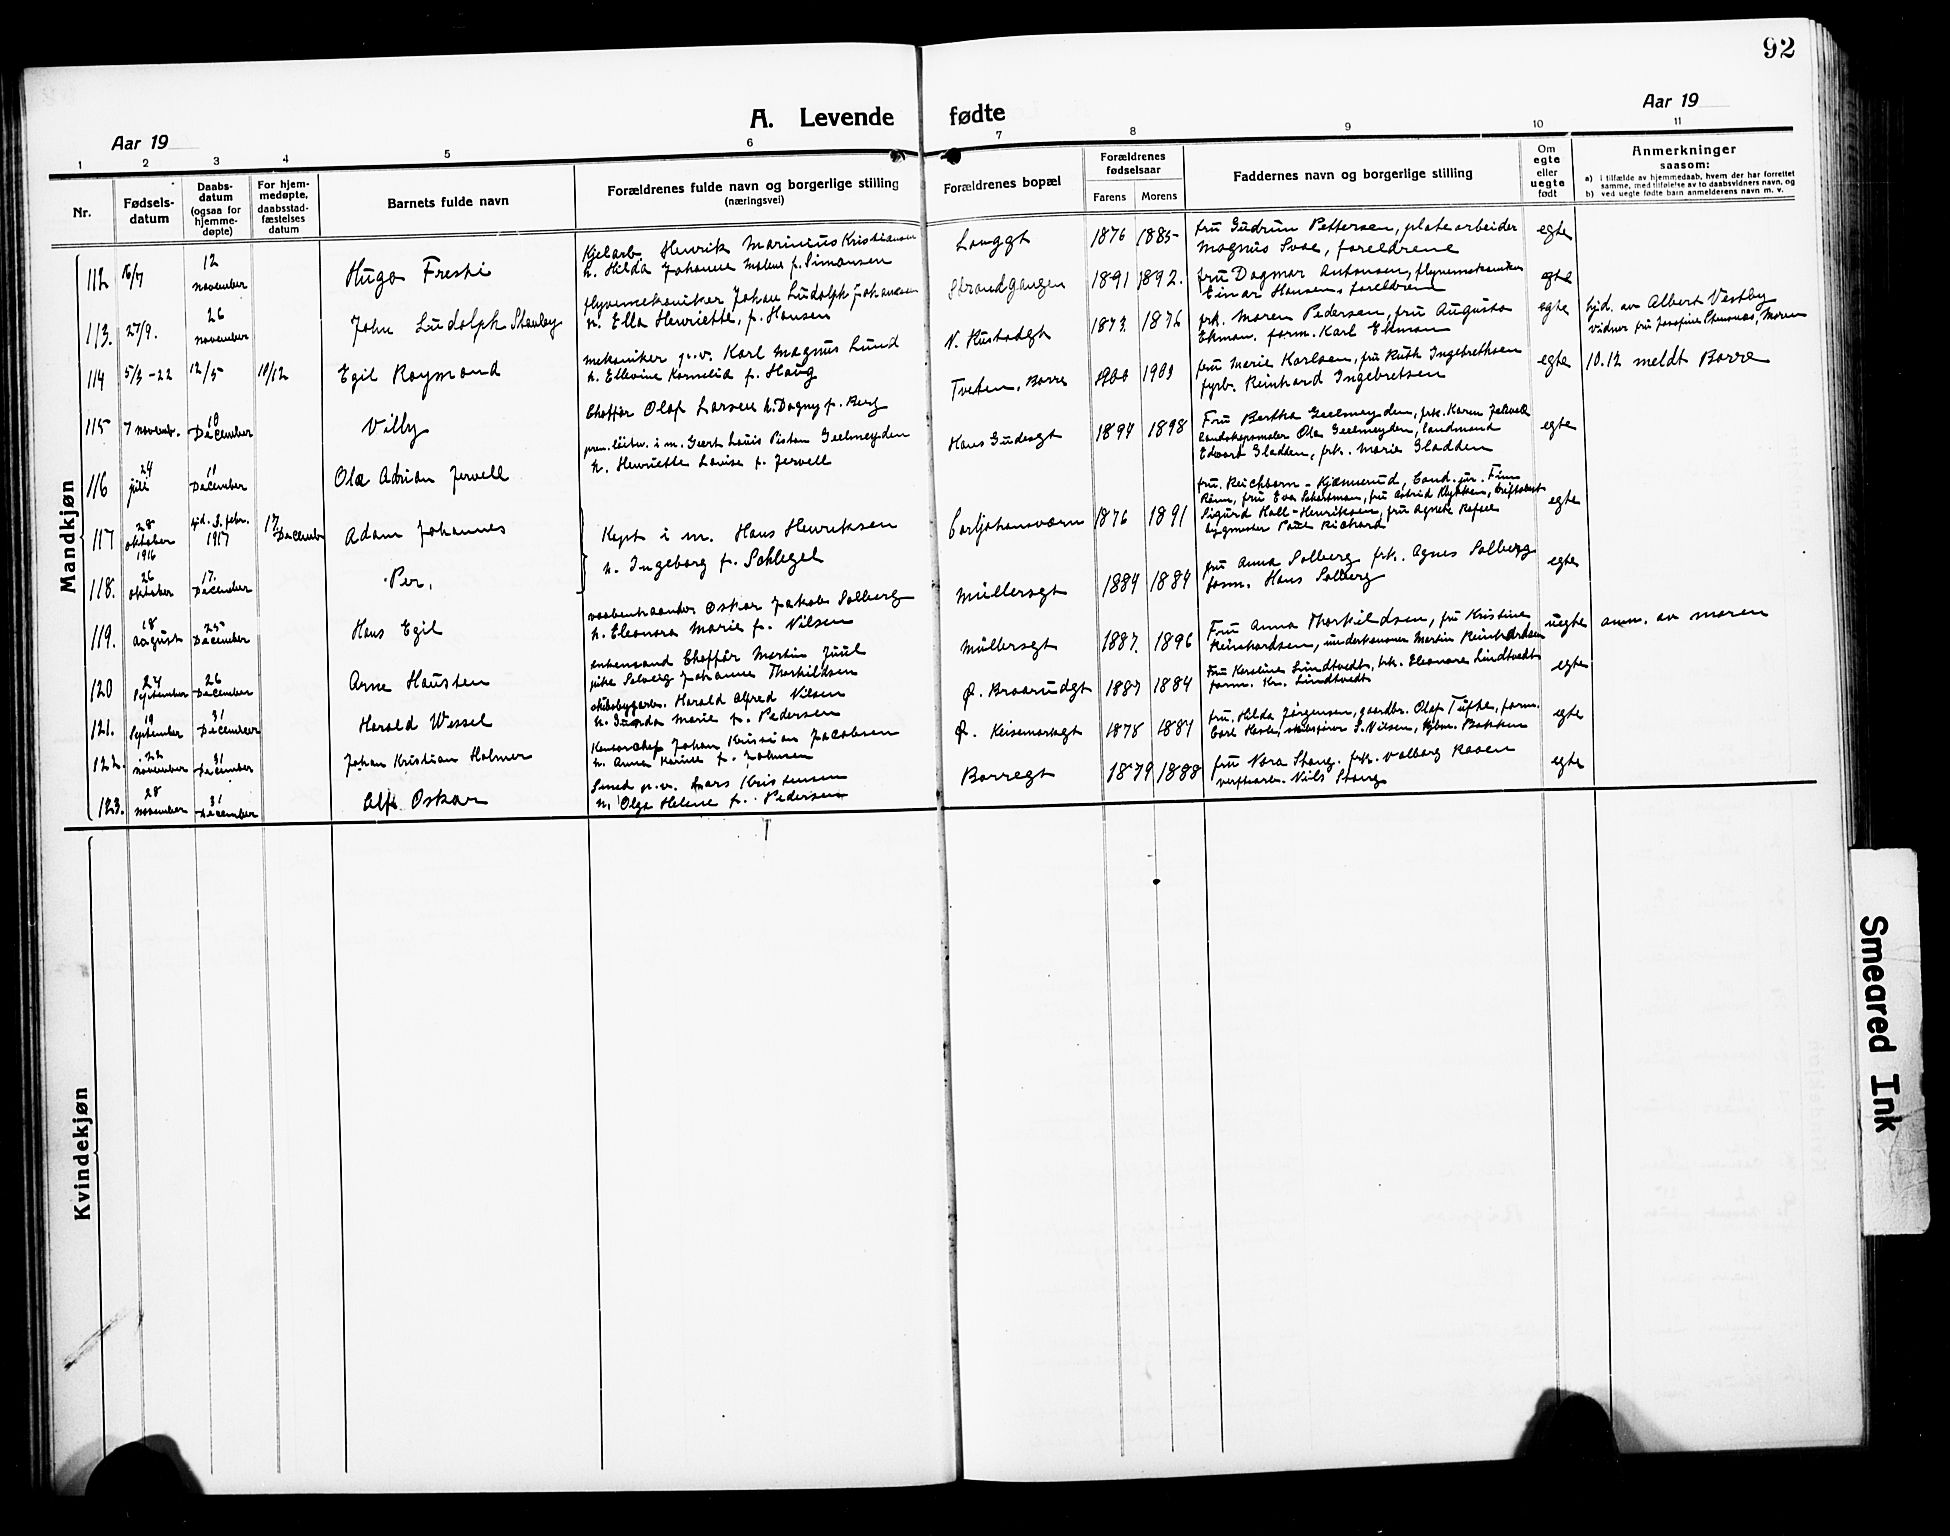 92
Aar 19
A. Levende fødte
Aar 19
1 2 3 4 5 6 7 8 9 10 11
Nr.
Fødsels-
datum
Daabs-
datum
(ogsaa for
hjemme-
døpte)
For hjem-
medøpte,
daabsstad-
fæstelses
datum
Barnets fulde navn
Forældrenes fulde navn og borgerlige stilling
(næringsvei)
Forældrenes bopæl
Forældrenes
fødselsaar
Farens Morens
Faddernes navn og borgerlige stilling
Om
egte
eller
uegte
født
Anmerkninger
saasom:
a) i tilfælde av hjemmedaab, hvem der har forrettet
samme, med tilføielse av to daabsvidners navn, og
b) ved uegte fødte barn anmelderens navn m. v.
Mandkjøn
112 16/7 12 november
Hugo
Kjelarb. Henrik Marinius Kristiansen
h. Hilda Johanne Malene f. Simonsen
Langgt 1876 1885
fru Gudrun Pettersen, platearbeider
Magnus Svae, foreldrene
egte
113. 27/9. 26 november
John Ludolph Stanley
flyvemekaniker Johan Ludolph Johansen
h. Ella Henriette, f. Hansen
Strandgangen 1891 1892.
fru Dagmar Antonsen, flyvemekaniker
Einar Hansen, foreldrene
egte
114 5/3-22 12/5 10/12
Egil Raymond
mekaniker p.v. Karl Magnus Lund
h. Ellevine Kornelia f. Haug
N. 1873 1876
frk. Maren Pedersen, fru Augusta
Ekman, form. Karl Ekman
egte
hjd. av Albert Vestby
vidner fru Josefine Moren
115 7 novemb. 10 December
Villy
Chaffør Olaf Larsen h. Dagny f. Berg
Tveten, Borre 1900 1903
fru Marie Karlsen, fru Ruth Ingebrethsen
fyrb. Reinhard Ingebretsen
egte
10.12 meldt Borre
116 24 juli 11 December
Ola Adrian Jervell
prem. løitn. i m. Geert Louis Pistan Geelmeyden
h. Henriette Lovise f. Jervell
Hans Gudesgt 1894 1898
Fru Bertha Geelmeyden, frk. Karen Jervell
landskapsmaler Ola Geelmeyden, landmand
Edvart Gladden, frk. Marie Gladden
egte
117 28 oktober 1916 hjd. 3. febr. 1917 17 December
Adam Johannes
Kapt i m. Hans Henriksen
h. Ingeborg f. Schlegel
Carljohansværn 1876 1891
fru. Reichborn-Kjennerud, Cand. jur. Finn
Rønn, fru Eva
Sigurd Hall-Henriksen, fru Agnete
bygmester Paul Richard
egte
118. 26 oktober 17. December
Per.
119. 18 August 25 December
Hans Egil
vaabenhaandv. Oskar Jakob Solberg
h. Eleonora Marie f. Nilsen
Müllersgt 1884 1884
fru Anna Solberg frk. Agnes Solberg
form. Hans Solberg
egte
120 27 September 26 December
Arne Hausten
enkemand Chaffør Martin Juul
pike Solveig Johanne Thorkildsen
Müllersgt 1887. 1896
Fru Anna Thorkildsen, fru Kristine
Reinhardsen, underkanoner Martin Reinhardsen
uegte
anm. av moren
121. 19 September 31 December
Harald Wessel
skibsbyggerarb. Harald Alfred Nilsen
h. Gunda Marie f. Pedersen
Ø. Braarudgt 1887 1884
Fru Karoline Lindtvedt, frk. Eleonore Lindtvedt
form. Kr. Lindtvedt
egte
122. 22 november 31 December
Johan Kristian Holmer
Kontorchef Johan Kristian Jacobsen
h. Anna Karine f. Johnsen
Ø. Keisemarkgt 1878 1887
fru. Hilda Jørgensen, gaardbr. Olaf Tufte, form.
S. Nilsen, Kjbm. Bakken
egte
123. 28 november 31 December
Alf Oskar
Smed p.v. Lars Kristensen
h. Olga Helene f. Pedersen
Borregt 1879 1888
fru Nora Stang, frk. Valborg Raven
verftsarb. Nils Stang
egte
Kvindekjøn
Smeared Ink